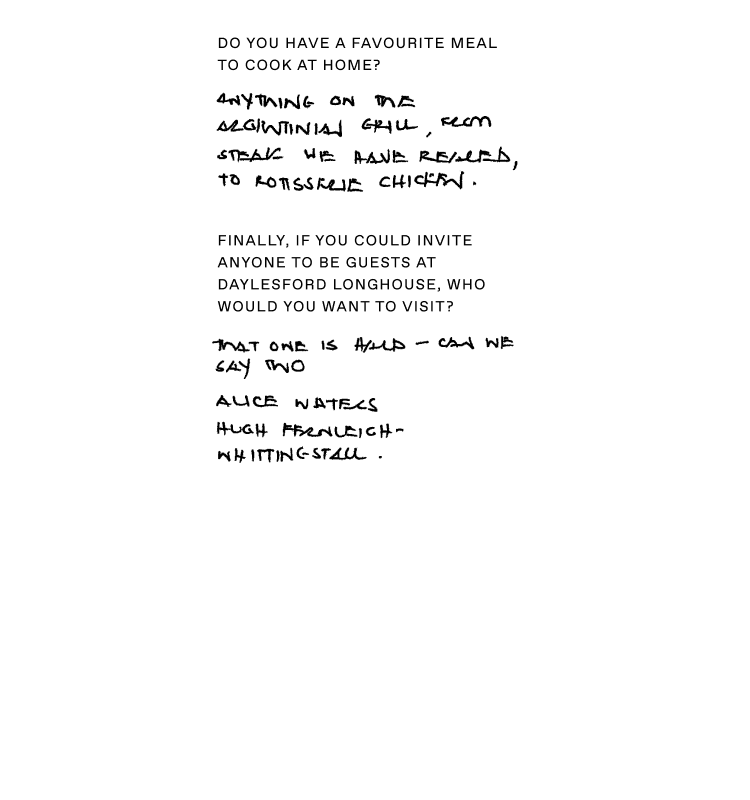 DO YOU HAVE A FAVOURITE MEAL
TO COOK AT HOME?
ANYTHING ON THE
ARGINTINIAN GRILL, FROM
STEAK WE HAVE REARED,
TO ROTISSERIE CHICKEN.
FINALLY, IF YOU COULD INVITE
ANYONE TO BE GUESTS AT
DAYLESFORD LONGHOUSE, WHO
WOULD YOU WANT TO VISIT?
THAT ONE IS HARD – CAN WE
SAY TWO
ALICE WATERS
HUGH FERNLEIGH-
WHITTINGSTALL.